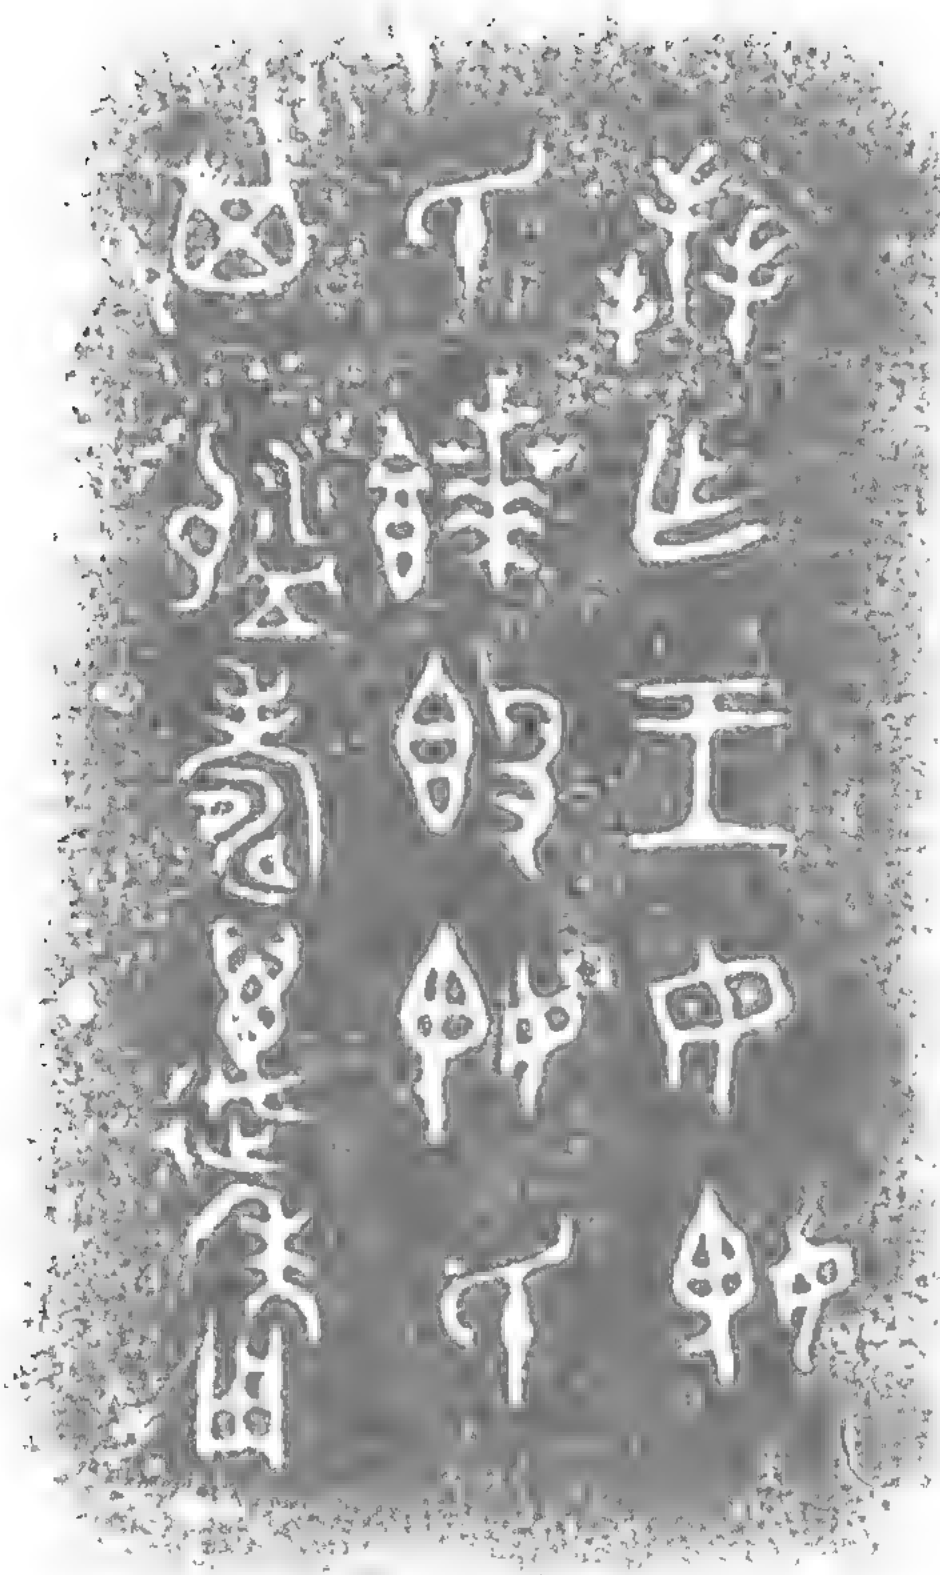 毳乍王母媿
氏饙𣪘媿氏
其眉壽邁年用